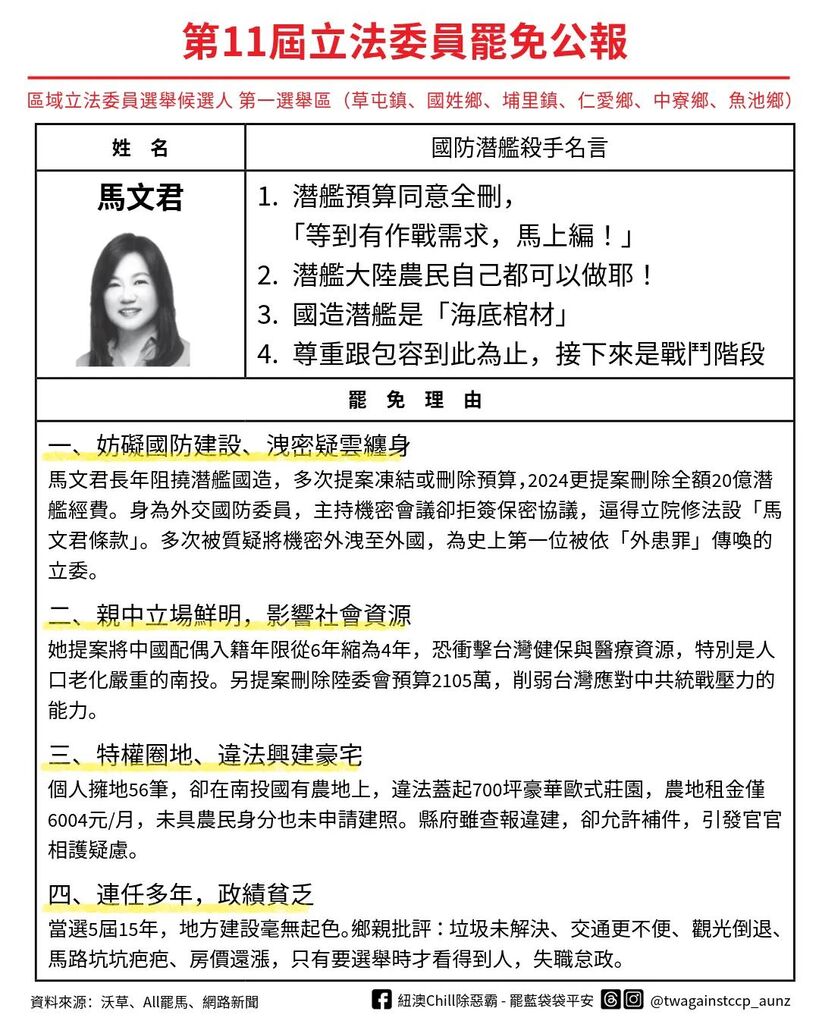 第11屆立法委員罷免公報
區域立法委員選舉候選人 第一選舉區（草屯鎮、國姓鄉、埔里鎮、仁愛鄉、中寮鄉、魚池鄉）
姓 名
國防潛艦殺手名言
馬文君
1. 潛艦預算同意全刪，
「等到有作戰需求，馬上編！」
2. 潛艦大陸農民自己都可以做耶！
3. 國造潛艦是「海底棺材」
4. 尊重跟包容到此為止，接下來是戰鬥階段
罷 免 理 由
一、妨礙國防建設、洩密疑雲纏身
馬文君長年阻撓潛艦國造，多次提案凍結或刪除預算，2024更提案刪除全額20億潛
艦經費。身為外交國防委員，主持機密會議卻拒簽保密協議，逼得立院修法設「馬
文君條款」。多次被質疑將機密外洩至外國，為史上第一位被依「外患罪」傳喚的
立委。
二、親中立場鮮明，影響社會資源
她提案將中國配偶入籍年限從6年縮為4年，恐衝擊台灣健保與醫療資源，特別是人
口老化嚴重的南投。另提案刪除陸委會預算2105萬，削弱台灣應對中共統戰壓力的
能力。
三、特權圈地、違法興建豪宅
個人擁地56筆，卻在南投國有農地上，違法蓋起700坪豪華歐式莊園，農地租金僅
6004元/月，未具農民身分也未申請建照。縣府雖查報違建，卻允許補件，引發官官
相護疑慮。
四、連任多年，政績貧乏
當選5屆15年，地方建設毫無起色。鄉親批評：垃圾未解決、交通更不便、觀光倒退、
馬路坑坑疤疤、房價還漲，只有要選舉時才看得到人，失職怠政。
資料來源：沃草、All罷馬、網路新聞
紐澳Chill除惡霸 - 罷藍袋袋平安 @twagainstccp_aunz